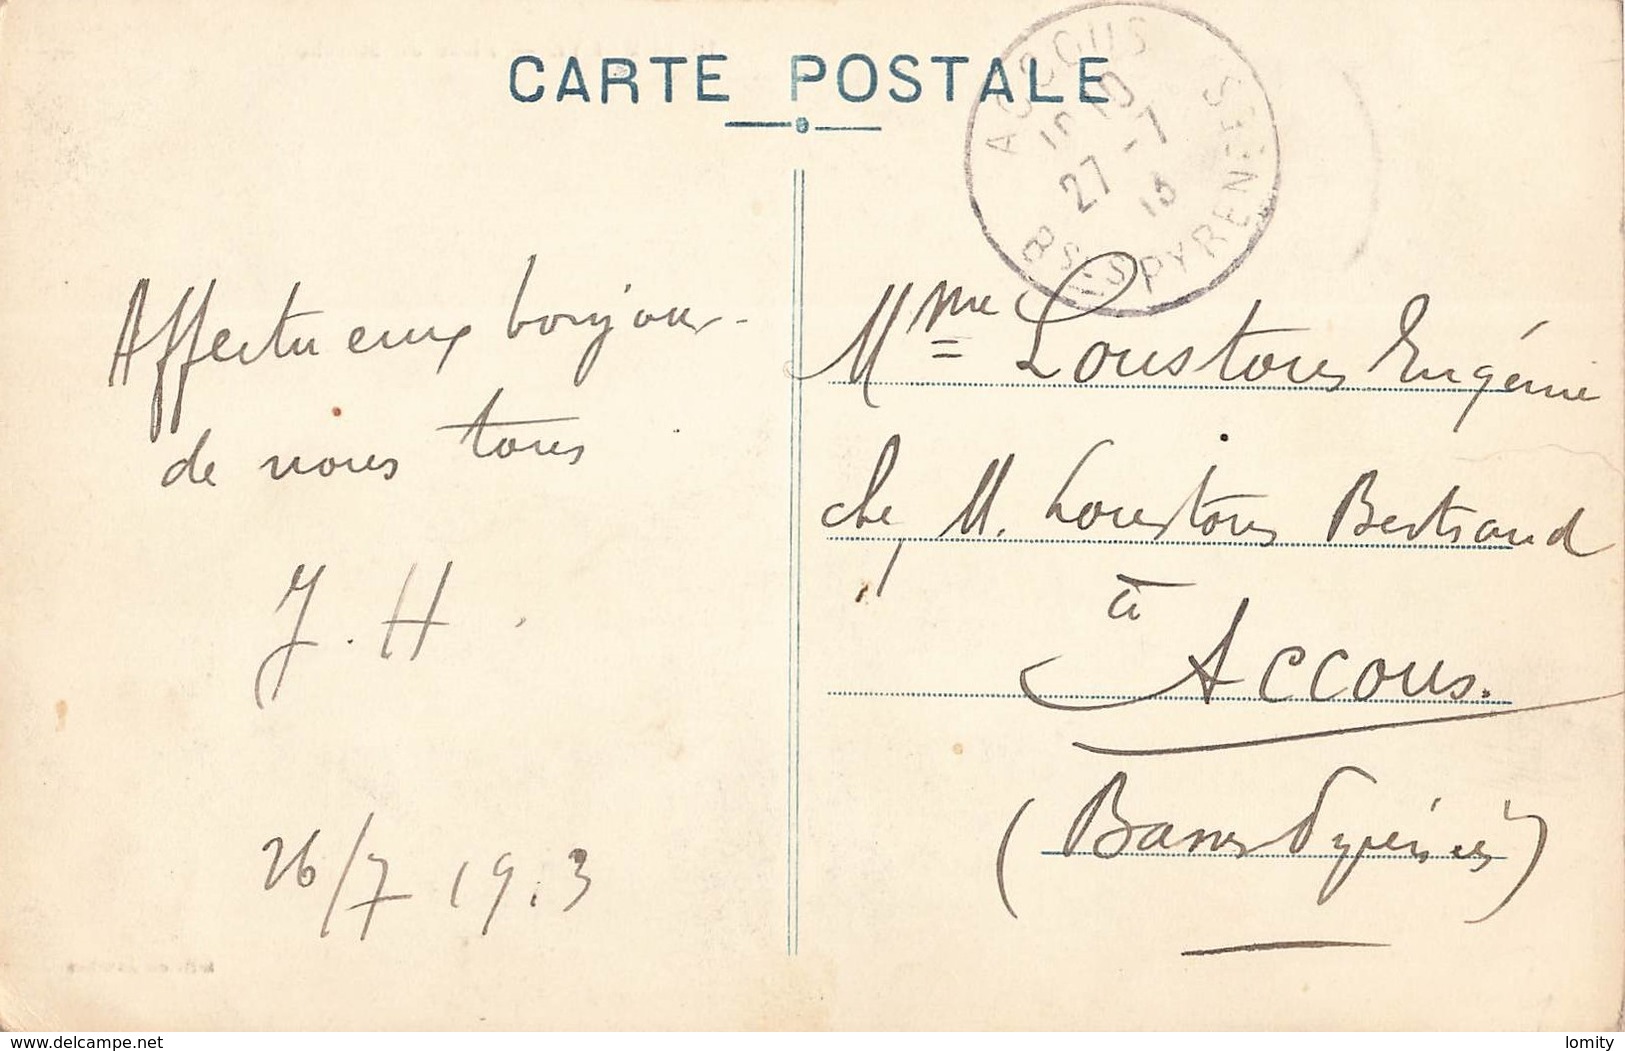 CARTE POSTALE
ACCOUS
27 -7
13
BS-SPYRENEES
Affectueux bonjour
de nous tous
J. H.
26/7 1913
Mme Loustous Eugénie
chez M. Loustous Bertrand
à
Accous.
(Basses Pyrénées)
www.delcampe.net
lomity